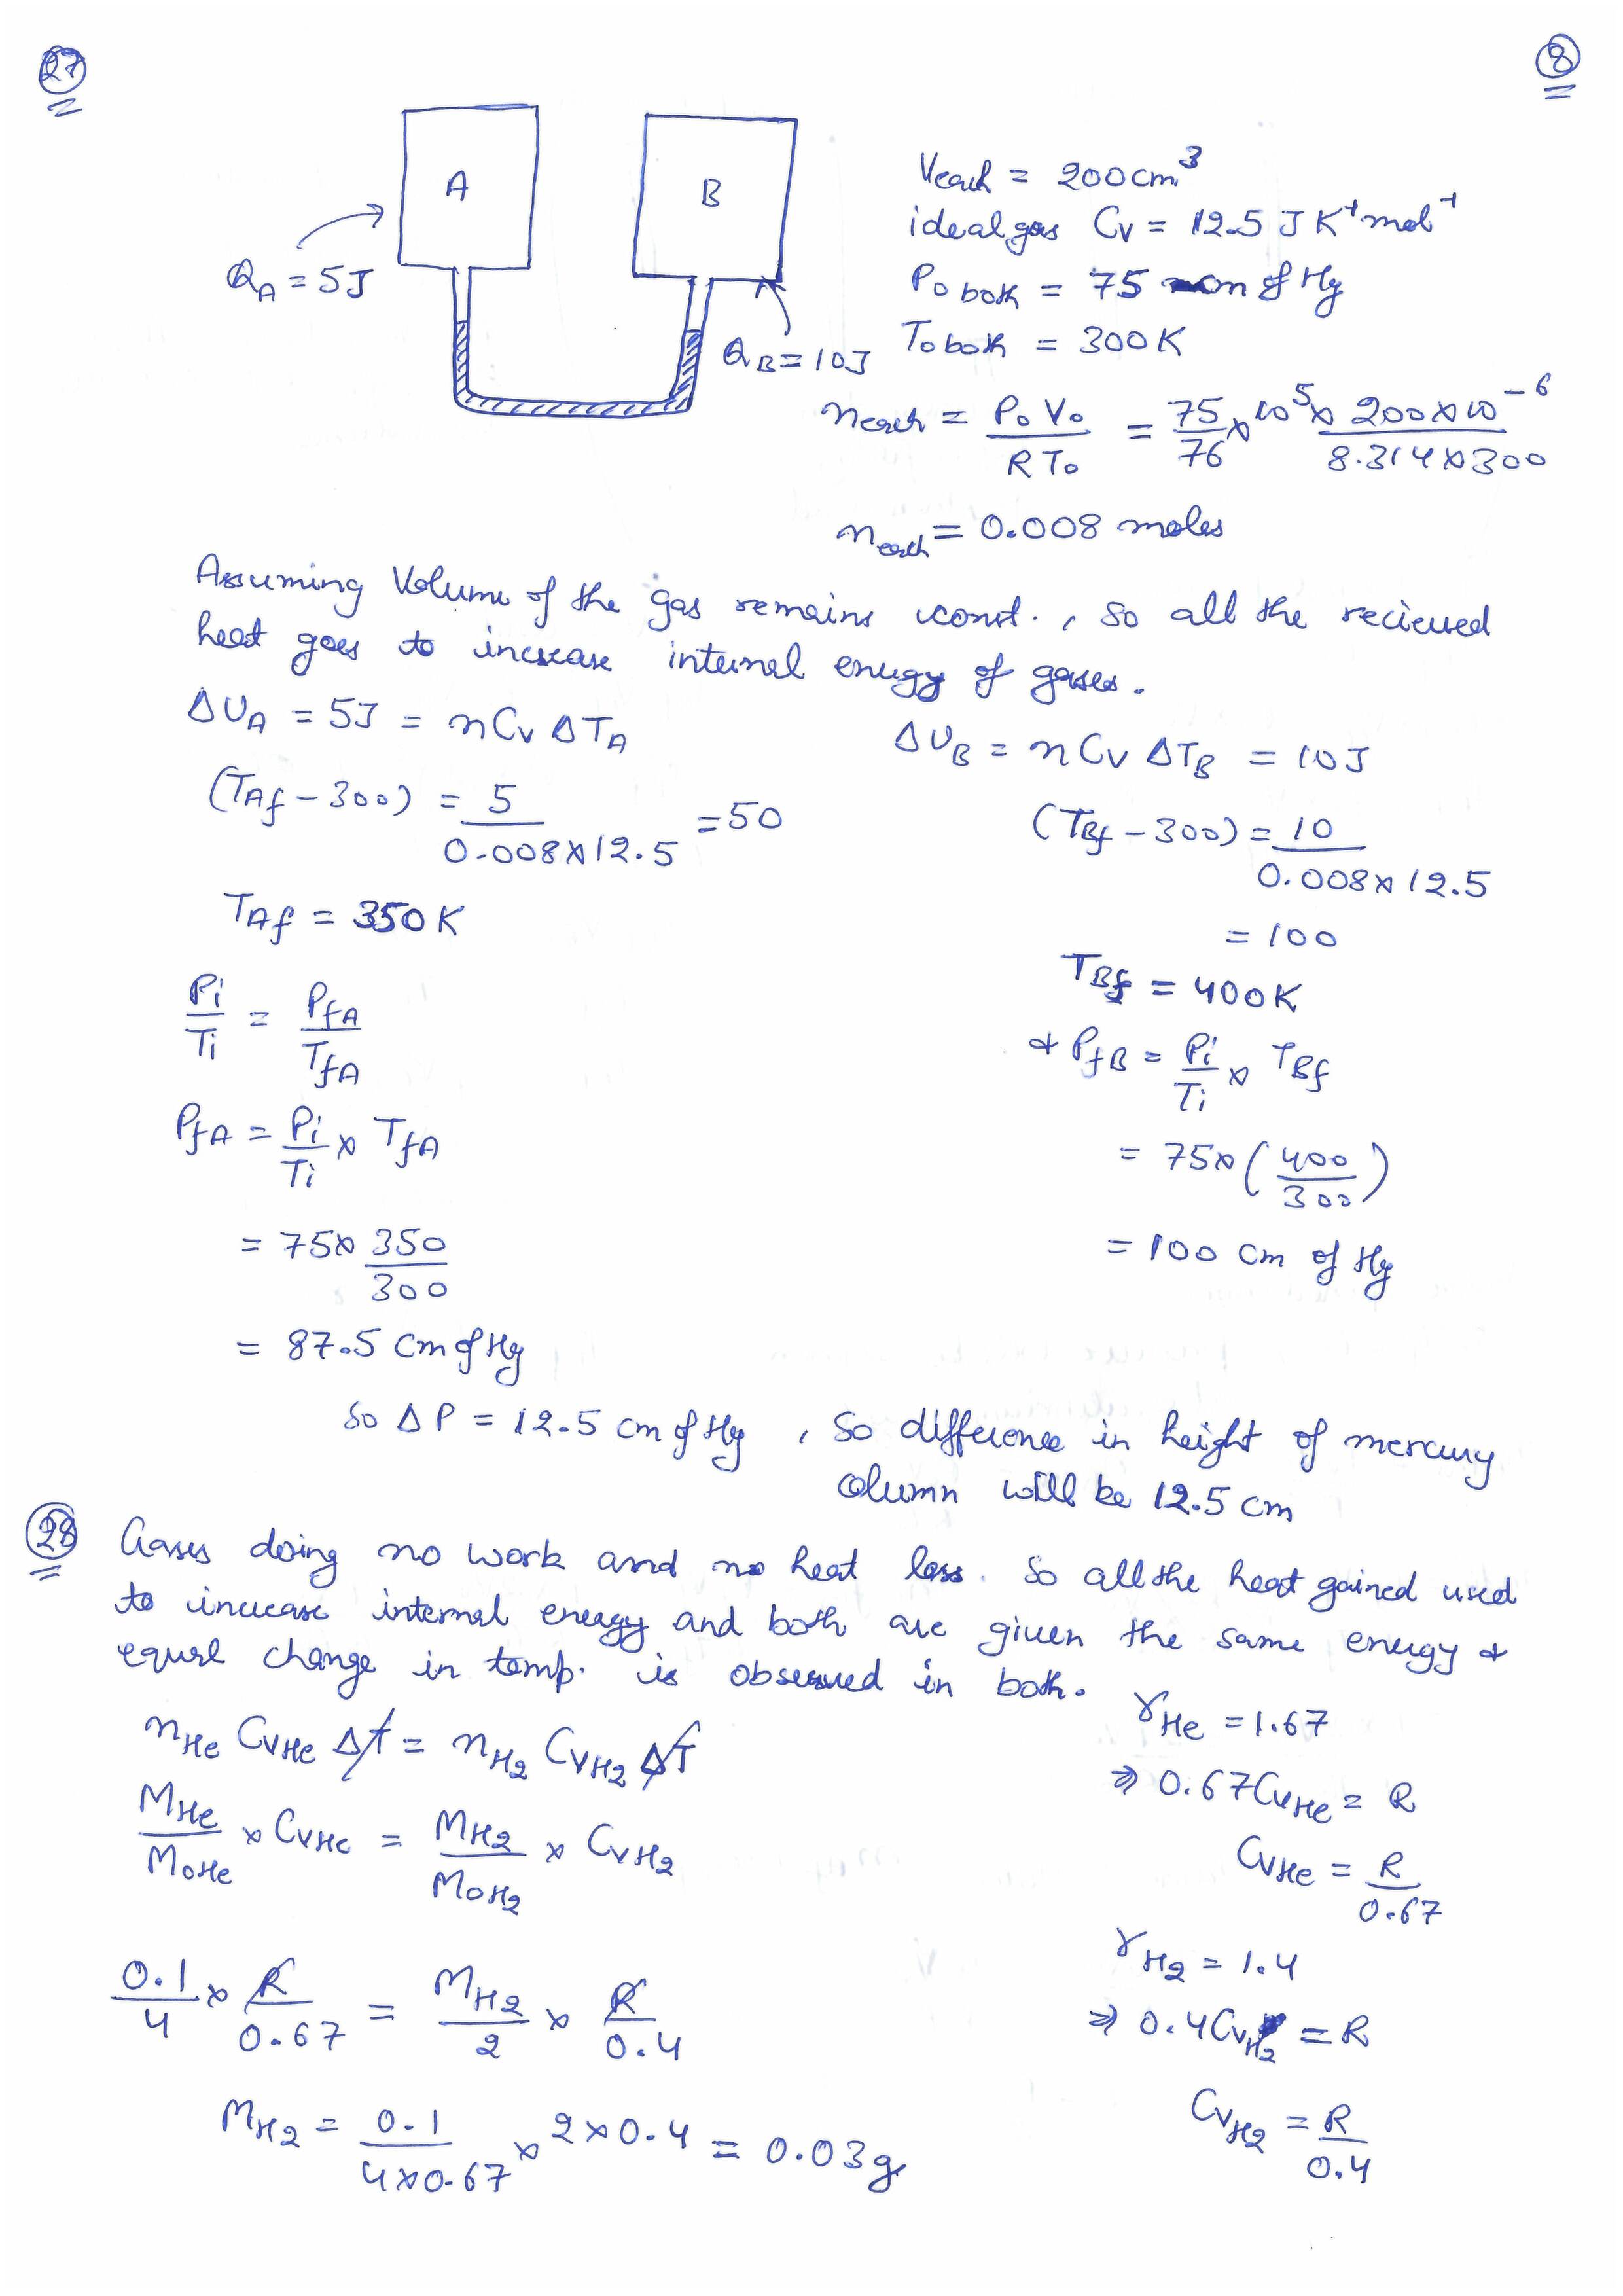 27
8
A
B
Q_A = 5J
Q_B = 10J
V_each = 200cm³
ideal gas C_V = 12.5 J K⁻¹ mol⁻¹
P_0 both = 75 cm of Hg
T_0 both = 300K
n_each = P_0 V_0 / R T_0 = 75/76 × 10⁵ × 200×10⁻⁶ / 8.314×300
n_each = 0.008 moles
Assuming Volume of the gas remains const., so all the recieved
heat goes to increase internal energy of gases.
ΔU_A = 5J = nC_V ΔT_A
(T_Af − 300) = 5 / 0.008×12.5 = 50
T_Af = 350K
P_i/T_i = P_fA/T_fA
P_fA = P_i/T_i × T_fA
= 75 × 350/300
= 87.5 cm of Hg
ΔU_B = nC_V ΔT_B = 10J
(T_Bf − 300) = 10 / 0.008×12.5
= 100
T_Bf = 400K
& P_fB = P_i/T_i × T_Bf
= 75×(400/300)
= 100 cm of Hg
So ΔP = 12.5 cm of Hg, So difference in height of mercury
column will be 12.5 cm
28 Gases doing no work and no heat loss. So all the heat gained used
to increase internal energy and both are given the same energy &
equal change in temp. is observed in both.
n_He C_VHe ΔT = n_H2 C_VH2 ΔT
M_He/M_0He × C_VHe = M_H2/M_0H2 × C_VH2
0.1/4 × R/0.67 = M_H2/2 × R/0.4
M_H2 = 0.1 / 4×0.67 × 2×0.4 = 0.03g
γ_He = 1.67
⇒ 0.67C_VHe = R
C_VHe = R/0.67
γ_H2 = 1.4
⇒ 0.4C_VH2 = R
C_VH2 = R/0.4